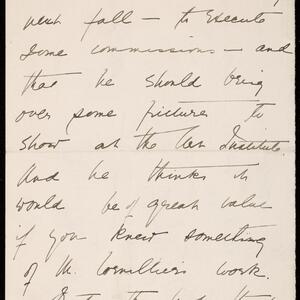 next fall - to execute
some commissions - and
that he should bring
over some pictures to
show at the Art Institute.
And he thinks it
would be of great value
if you knew something
of M. Cornillier's work.